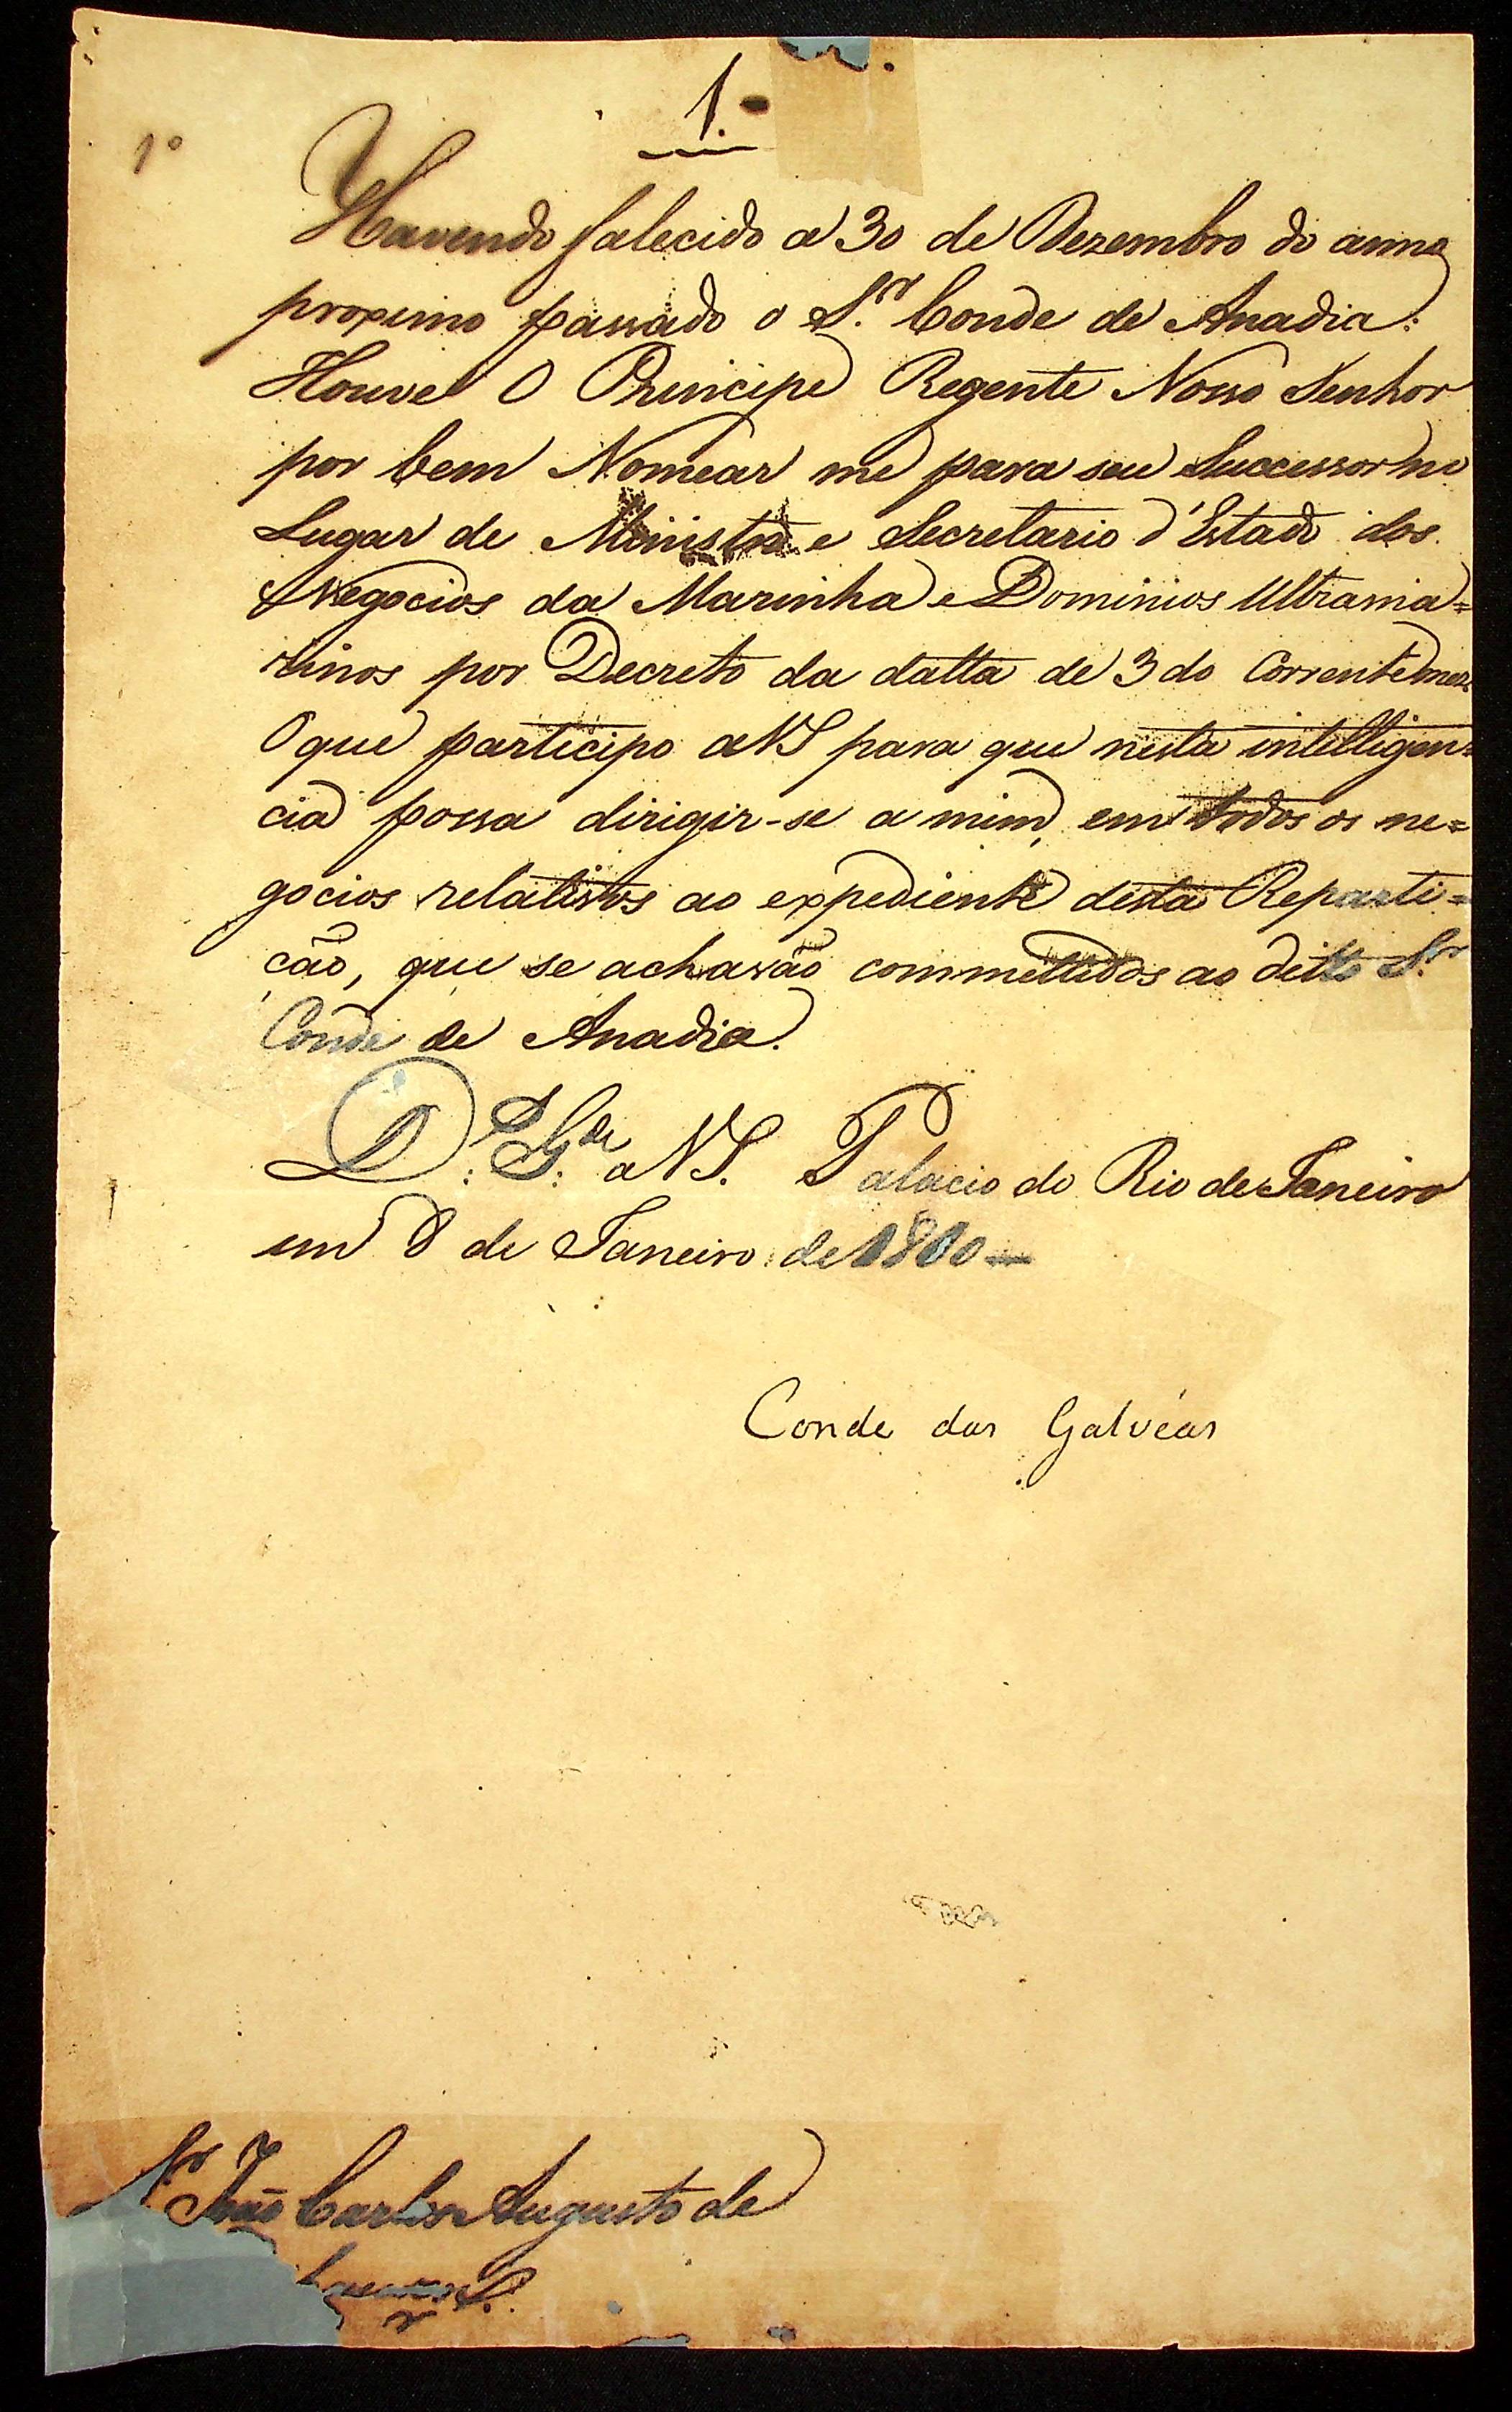 1.
1º
Havendo falecido a 30 de Dezembro do anno
proximo passado o S.or Conde de Anadia:
Houve O Principe Regente Nosso Senhor
por bem Nomear me para seu Successor no
Lugar de Ministro e Secretario d'Estado dos
Negocios da Marinha e Dominios Ultrama=
rinos por Decreto da datta de 3 do Corrente mez.
O que participo a VS para que nesta intelligen=
cia possa dirigir-se a mim, em todos os ne=
gocios relativos ao expediente desta Reparti=
ção, que se achavão commettidos ao ditto S.or
Conde de Anadia.
D.s G.de a VS. Palacio do Rio de Janeiro
em 8 de Janeiro de 1810
Conde das Galvêas
S.r João Carlos Augusto de